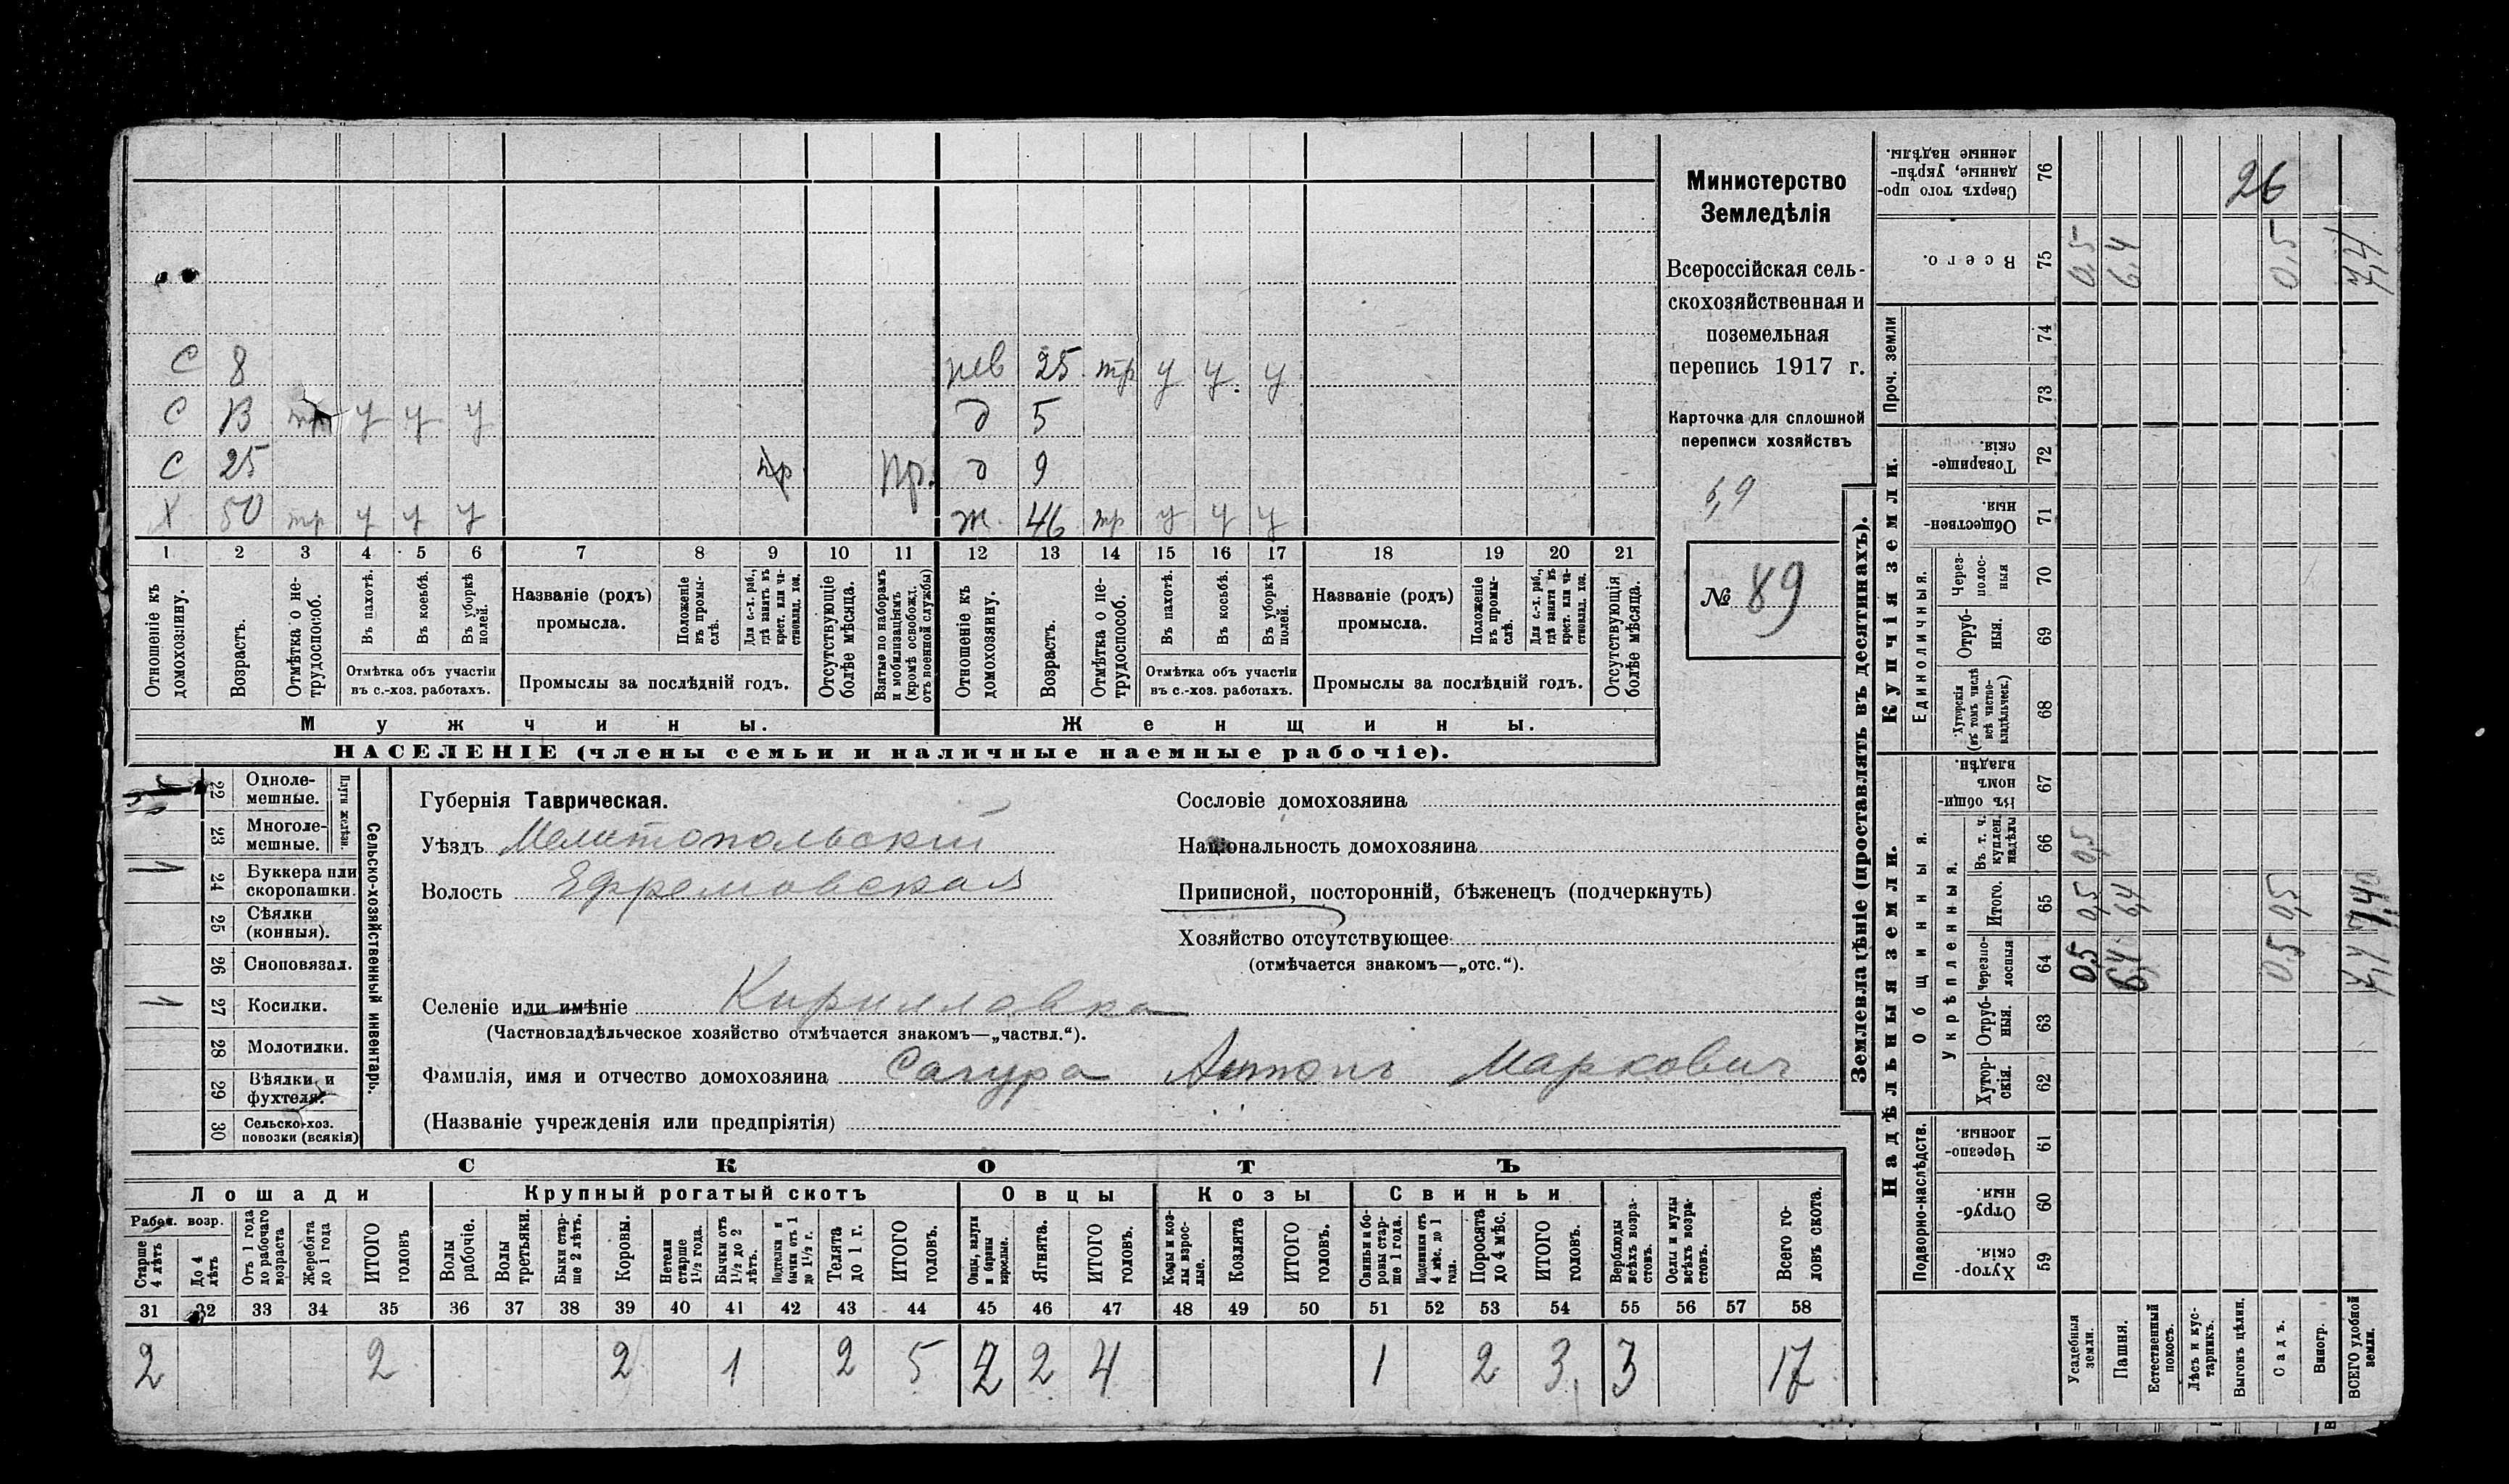 С 8 нев 25 тр у у. у
С 13 тр у у у д 5
С 25 пр. д 9
Х 50 тр у у у ж. 46 тр у у у
1 2 3 4 5 6 7 8 9 10 11 12 13 14 15 16 17 18 19 20 21
Отношеніе къ домохозяину.
Возрастъ.
Отмѣтка о нетрудоспособ.
Въ пахотѣ.
Въ косьбѣ.
Въ уборкѣ полей.
Отмѣтка объ участіи
въ с.-хоз. работахъ.
Названіе (родъ)
промысла.
Положеніе въ промыслѣ.
Для с.-х. раб., гдѣ занятъ въ крест. или частновлад. хоз.
Промыслы за послѣдній годъ.
Отсутствующіе болѣе мѣсяца.
Взятые по наборамъ и мобилизаціямъ (кромѣ освобожд. отъ военной службы)
Отношеніе къ домохозяину.
Возрастъ.
Отмѣтка о нетрудоспособ.
Въ пахотѣ.
Въ косьбѣ.
Въ уборкѣ полей.
Отмѣтка объ участіи
въ с.-хоз. работахъ.
Названіе (родъ)
промысла.
Положеніе въ промыслѣ.
Для с.-х. раб., гдѣ занята въ крест. или частновлад. хоз.
Промыслы за послѣдній годъ.
Отсутствующія болѣе мѣсяца.
Мужчины.
Женщины.
НАСЕЛЕНІЕ (члены семьи и наличные наемные рабочіе).
Министерство
Земледѣлія
Всероссійская сель-
скохозяйственная и
поземельная
перепись 1917 г.
Карточка для сплошной
переписи хозяйствъ
6,9
№ 89
22 Одноле-
мешные.
23 Многоле-
мешные.
Плуги желѣзн.
24 Буккера или
скоропашки.
25 Сѣялки
(конныя).
26 Сноповязал.
27 Косилки.
28 Молотилки.
29 Вѣялки и
фухтеля.
30 Сельско-хоз.
повозки (всякія)
Сельско-хозяйственный инвентарь.
Губернія Таврическая.
Уѣздъ Мелитопольскій
Волость Ефремовская
Сословіе домохозяина
Національность домохозяина
Приписной, посторонній, бѣженец (подчеркнуть)
Хозяйство отсутствующее
(отмѣчается знакомъ—„отс.“).
Селеніе или имѣніе Кирилловка
(Частновладѣльческое хозяйство отмѣчается знакомъ—„частвл.“).
Фамилія, имя и отчество домохозяина Сагура Антонъ Маркович
(Названіе учрежденія или предпріятія)
СКОТЪ
Лошади Крупный рогатый скотъ Овцы Козы Свиньи
Рабоч. возр.
Старше 4 лѣтъ
До 4 лѣтъ
Отъ 1 года до рабочаго возраста
Жеребята до 1 года
ИТОГО головъ
Волы рабочіе.
Волы третьяки.
Быки старше 2 лѣтъ.
Коровы.
Нетели старше 1½ года.
Бычки отъ 1½ до 2 лѣтъ.
Подтелки и бычки отъ 1 до 1½ г.
Телята до 1 г.
ИТОГО головъ.
Овцы, валухи и бараны взрослые.
Ягнята.
ИТОГО головъ.
Козы и козлы взрослые.
Козлята
ИТОГО головъ.
Свиньи и боровы старше 1 года.
Подсвинки отъ 4 мѣс. до 1 года.
Поросята до 4 мѣс.
ИТОГО головъ.
Верблюды всѣхъ возрастовъ.
Ослы и мулы всѣхъ возрастовъ.
Всего головъ скота.
31 32 33 34 35 36 37 38 39 40 41 42 43 44 45 46 47 48 49 50 51 52 53 54 55 56 57 58
2 2 2 1 2 5 2 2 4 1 2 3 3 17
Землевладѣніе (проставлять въ десятинахъ).
Надѣльныя земли.
Купчія земли.
Проч. земли
Подворно-наслѣдств.
Общинныя.
Укрѣпленныя.
Единоличныя.
Сверхъ того проданные, укрѣпленные надѣлы. 76 26
Всего. 75 0,5 6,4 0,5 7,4
74
73
Товарищескія. 72
Общественныя. 71
Черезполосныя 70
Отрубныя. 69
Хуторскія (въ томъ числѣ всѣ частновладѣльческ.) 68
Въ общинномъ владѣн. 67
Въ т. ч. куплен. надѣлы 66 0,5
Итого. 65 0,5 6,4 0,5 7,4
Черезполосныя 64 0,5 6,4 0,5 7,4
Отрубныя. 63
Хуторскія. 62
Черезполосныя. 61
Отрубныя. 60
Хуторскія. 59
Усадебныя земли.
Пашня.
Естественный покосъ.
Лѣсъ и кустарникъ.
Выгонъ цѣлин.
Садъ.
Виногр.
ВСЕГО удобной земли.